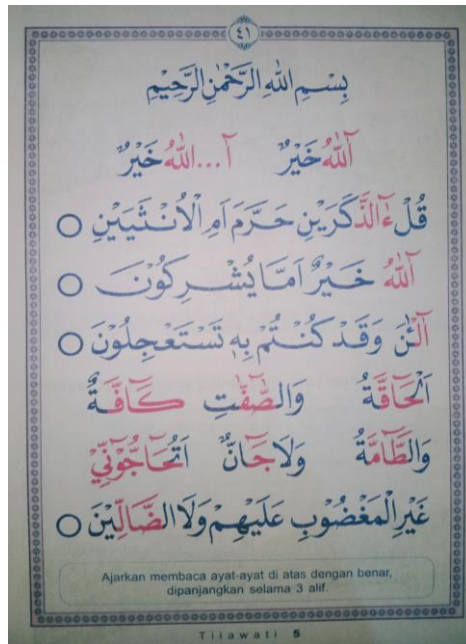 ٤١
بِسْمِ اللهِ الرَّحْمٰنِ الرَّحِيْمِ
آللهُ خَيْرٌ آ...اللهُ خَيْرٌ
قُلْ ءٰٓالذَّكَرَيْنِ حَرَّمَ اَمِ الْاُنْثَيَيْنِ ○
آللهُ خَيْرٌ اَمَّا يُشْرِكُوْنَ ○
آلْـٰٔنَ وَقَدْ كُنْتُمْ بِهٖ تَسْتَعْجِلُوْنَ ○
اَلْحَآقَّةُ وَالصّٰٓفّٰتِ كَآفَّةٌ
وَالطَّآمَّةُ وَلَاجَآنٌّ اَتُحَآجُّوْٓنِّيْ
غَيْرِ الْمَغْضُوْبِ عَلَيْهِمْ وَلَا الضَّآلِّيْنَ ○
Ajarkan membaca ayat-ayat di atas dengan benar,
dipanjangkan selama 3 alif.
Tilawati 5